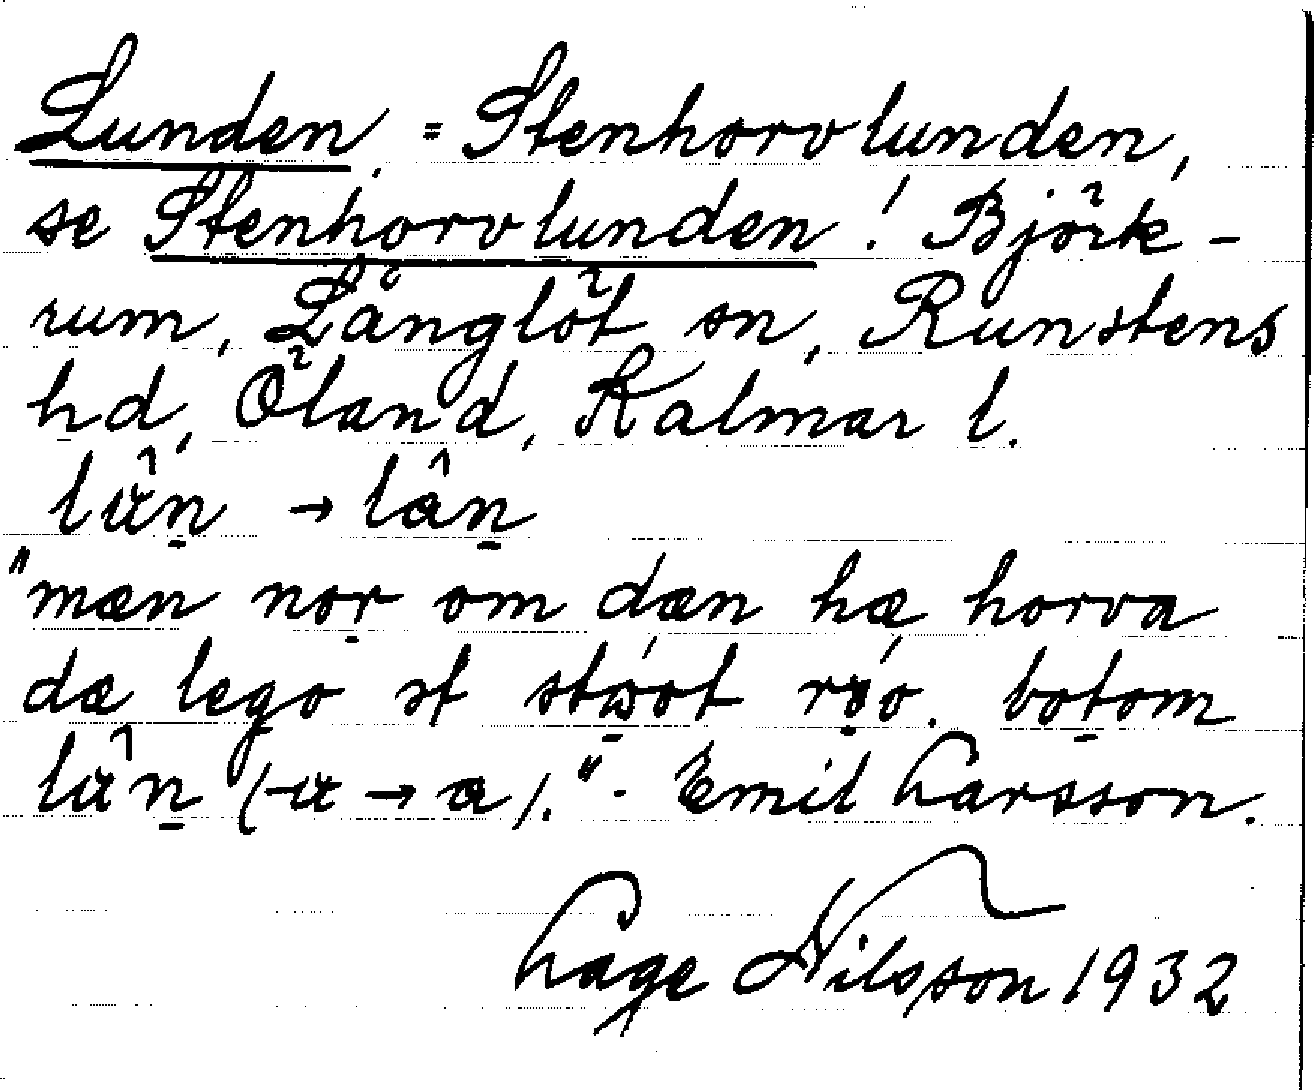 Lunden, = Stenhorvlunden,
se Stenhorvlunden! Björk-
rum, Långlöt sn, Runstens
hd, Öland, Kalmar l.
lɯ̂n̠ → lân̠
"mæn nor̠ om dæn hæ, horva
dæ lego st
lɯ̂n̠ (-ɯ → a)." - Emil Larsson.
Lage Nilsson 1932